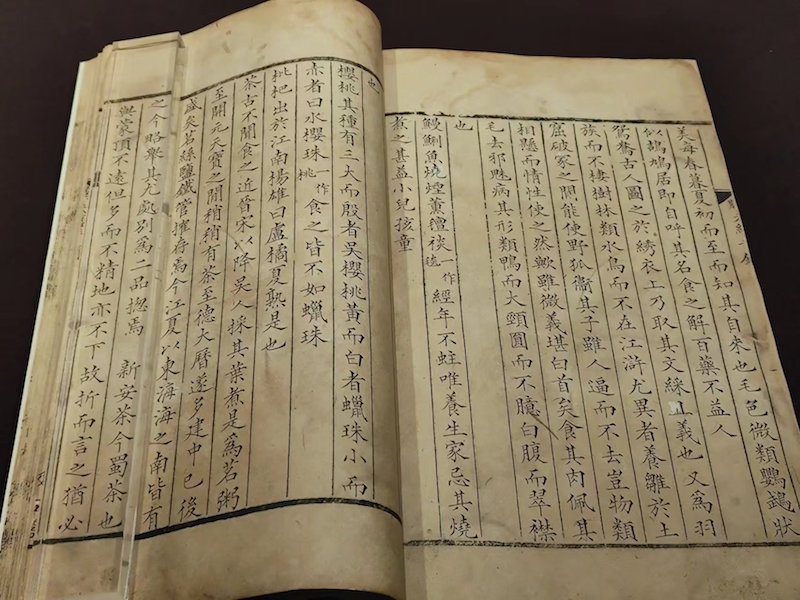 美每春暮夏初而至而知其自来也毛色微類鸚鵡狀
似鳩居即自呼其名食之解百藥不益人
鴛鴦古人圖之於綉衣上乃取其文綵義也 又爲羽
族而不棲樹林類水鳥而不在江滸尤異者養雛於土
窟破冢之間能使野狐衞其子雖人逼而不去豈物類
相懸而情性使之然歟雖微義堪白首矣食其肉佩其
毛去邪魅病其形類鴨而大頸圓而不臆白腹而翠襟
也
鰻鯏魚燒煙薰氊一作毯經年不蛀唯養生家忌其燒
煮之甚益小兒孩童
也
櫻桃其種有三大而殷者吳櫻桃黃而白者蠟珠小而
赤者曰水櫻珠一作桃食之皆不如蠟珠
枇杷出於江南楊雄曰盧橘夏熟是也
茶古不聞食之近晉宋以降吳人採其葉煮是爲茗粥
至開元天寶之閒稍稍有茶至德大曆遂多建中已後
盛矣茗絲鹽鐵管㩁存焉今江夏以東海海之南皆有
之今略舉其尤處別爲二品揔焉 新安茶今蜀茶也
與蒙頂不遠但多而不精地亦不下故折而言之猶必